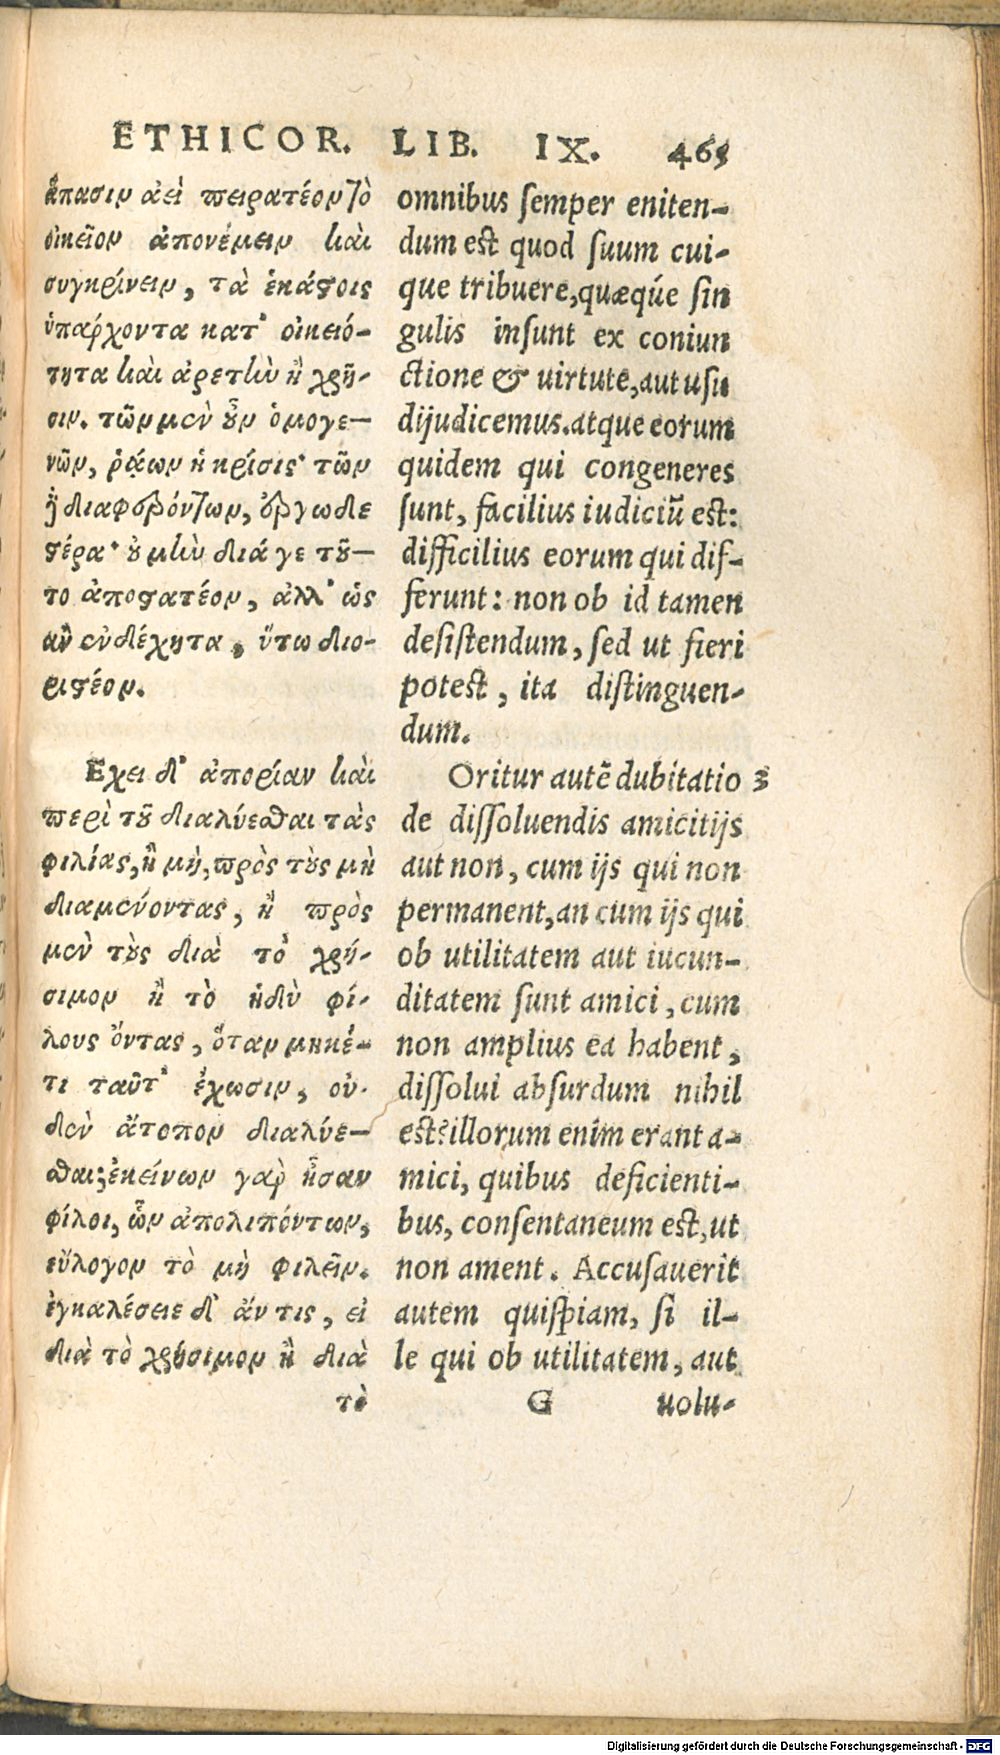 ETHICOR. LIB. IX. 465
ἅπασιν ἀεὶ πειρατέον τὸ
οἰκεῖον ἀπονέμειν καὶ
συγκρίνειν, τὰ ἑκάστοις
ὑπάρχοντα κατ' οἰκειό-
τητα καὶ ἀρετὴν ἢ χρῆ-
σιν. τῶν μὲν οὖν ὁμογε-
νῶν, ῥᾴων ἡ κρίσις· τῶν
δὲ διαφερόντων, ἐργωδε
στέρα· οὐ μὴν διά γε τοῦ-
το ἀποστατέον, ἀλλ' ὡς
ἂν ἐνδέχηται, οὕτω διο-
ριστέον.
Εχει δ' ἀπορίαν καὶ
περὶ τοῦ διαλύεσθαι τὰς
φιλίας, ἢ μὴ, πρὸς τοὺς μὴ
διαμένοντας, ἢ πρὸς
μὲν τοὺς διὰ τὸ χρή-
σιμον ἢ τὸ ἡδὺ φί-
λους ὄντας, ὅταν μηκέ-
τι ταῦτ' ἔχωσιν, οὐ-
δὲν ἄτοπον διαλύε-
σθαι; ἐκείνων γὰρ ἦσαν
φίλοι, ὧν ἀπολιπόντων,
εὔλογον τὸ μὴ φιλεῖν.
ἐγκαλέσειε δ' ἄν τις, εἰ
διὰ τὸ χρήσιμον ἢ διὰ
τὸ
omnibus semper eniten-
dum est quod suum cui-
que tribuere, quæq́ue sin
gulis insunt ex coniun
ctione & uirtute, aut usu
dijudicemus. atque eorum
quidem qui congeneres
sunt, facilius iudiciũ est:
difficilius eorum qui dif-
ferunt: non ob id tamen
desistendum, sed ut fieri
potest, ita distinguen-
dum.
Oritur autẽ dubitatio 3
de dissoluendis amicitijs
aut non, cum ijs qui non
permanent, an cum ijs qui
ob utilitatem aut iucun-
ditatem sunt amici, cum
non amplius ea habent,
dissolui absurdum nihil
est? illorum enim erant a-
mici, quibus deficienti-
bus, consentaneum est, ut
non ament. Accusauerit
autem quispiam, si il-
le qui ob utilitatem, aut
G uolu-
Digitalisierung gefördert durch die Deutsche Forschungsgemeinschaft - DFG